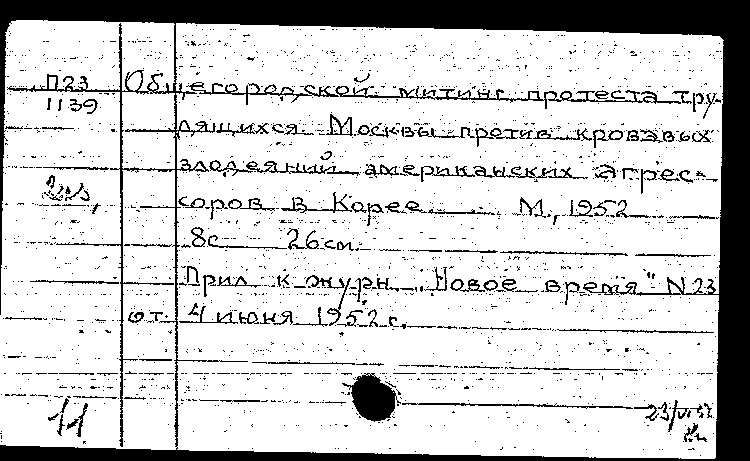 П23 Общегородской митинг протеста тру-
1139
дящихся Москвы против кровавых
злодеяний американских агрес-
соров в Корее. М., 1952
8с 26см.
Прил к журн. "Новое время" N 23
от 4 июня 1952 г.
11